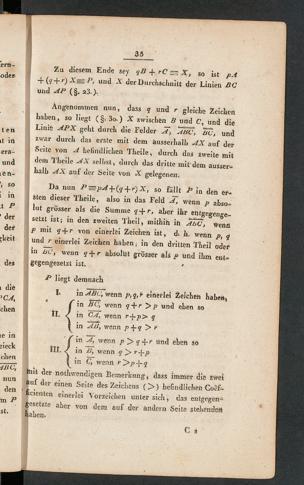 35
Zu diesem Ende sey qB + rC ≡ X, so ist pA
+ (q + r) X ≡ P, und X der Durchschnitt der Linien BC
und AP (§. 23.).
Angenommen nun, dass q und r gleiche Zeichen
haben, so liegt (§. 30.) X zwischen B und C, und die
Linie APX geht durch die Felder A, ABC, BC, und
zwar durch das erste mit dem ausserhalb AX auf der
Seite von A befindlichen Theile, durch das zweite mit
dem Theile AX selbst, durch das dritte mit dem ausser-
halb AX auf der Seite von X gelegenen.
Da nun P ≡ pA + (q + r) X, so fällt P in den er-
sten dieser Theile, also in das Feld A, wenn p abso-
lut grösser als die Summe q + r, aber ihr entgegenge-
setzt ist; in den zweiten Theil, mithin in ABC, wenn
p mit q + r von einerlei Zeichen ist, d. h. wenn p, q
und r einerlei Zeichen haben; in den dritten Theil oder
in BC, wenn q + r absolut grösser als p und ihm ent-
gegengesetzt ist.
P liegt demnach
I. in ABC, wenn p, q, r einerlei Zeichen haben,
in BC, wenn q + r > p und eben so
II. in CA, wenn r + p > q
in AB, wenn p + q > r
in A, wenn p > q + r und eben so
III. in B, wenn q > r + p
in C, wenn r > p + q
mit der nothwendigen Bemerkung, dass immer die zwei
auf der einen Seite des Zeichens (>) befindlichen Coëf-
ficienten einerlei Vorzeichen unter sich, das entgegen-
gesetzte aber von dem auf der andern Seite stehenden
haben.
C 2